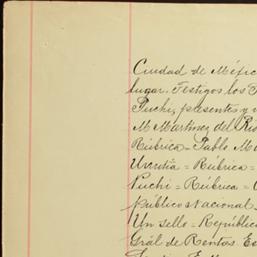 Ciudad de Méxic
lugar. Testigos los
Puchi, presentes y
M. Martinez del Rio
Rúbrica = Pablo M
Urrutia = Rúbrica =
Puchi = Rúbrica =
Público Nacional
Un sello = Repúblic
Gral de Rentas. Es